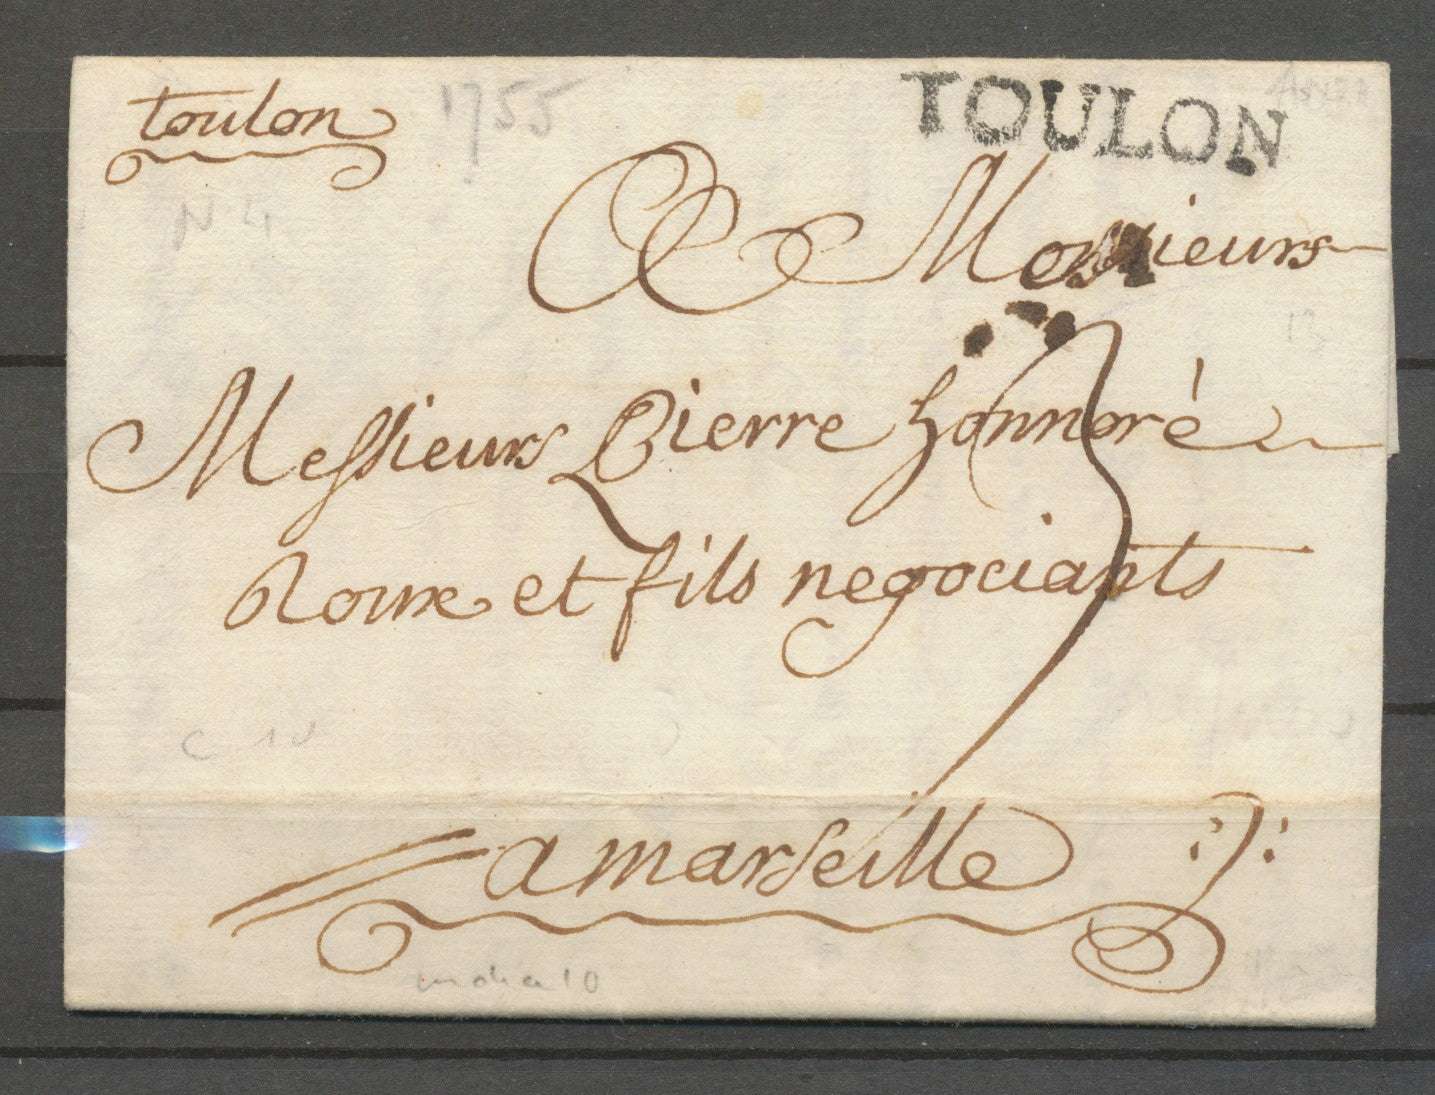 toulon 1755 TOULON
N 4
Messieurs
13
Messieurs Pierre honnoré
Roux et fils negociants
3
C 10
a marseille
indice 10